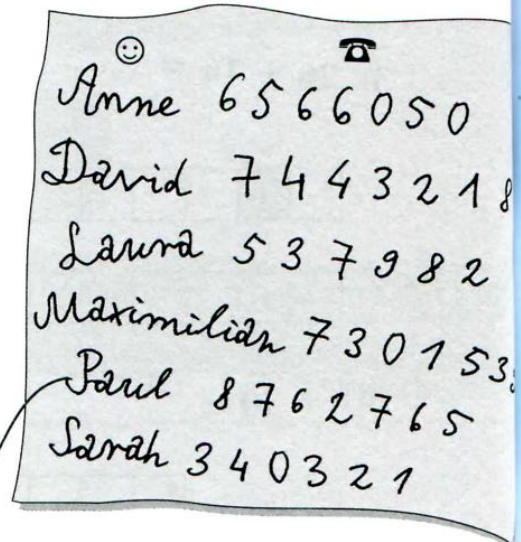 Anne 6566050
David 7443218
Laura 537982
Maximilian 730153
Paul 8762765
Sarah 340321